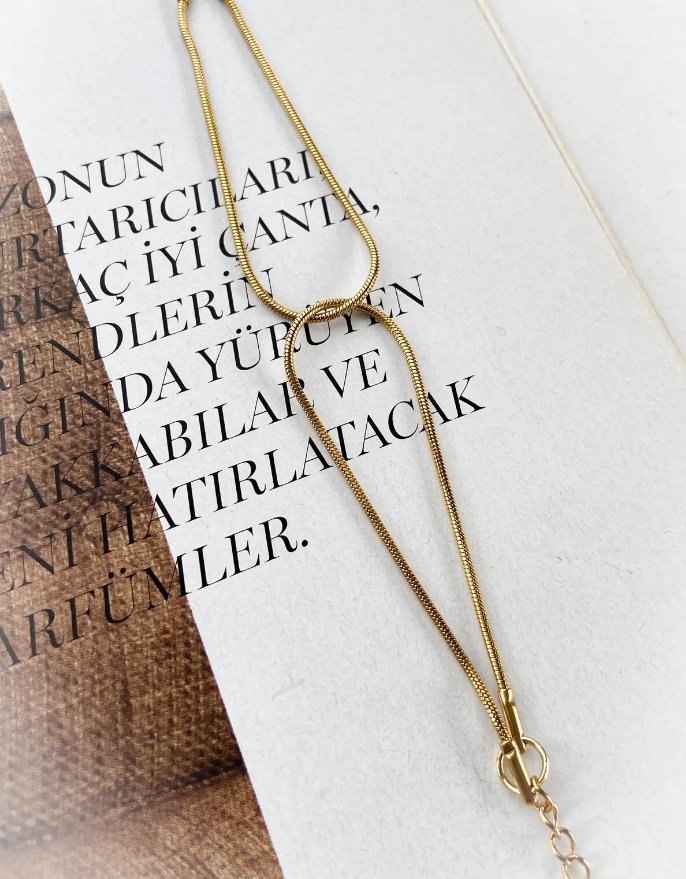 ZONUN
URTARICILARI,
RKAÇ İYİ ÇANTA,
RENDLERİN
IĞINDA YÜRÜYEN
YAKKABILAR VE
ENİ HATIRLATACAK
ARFÜMLER.